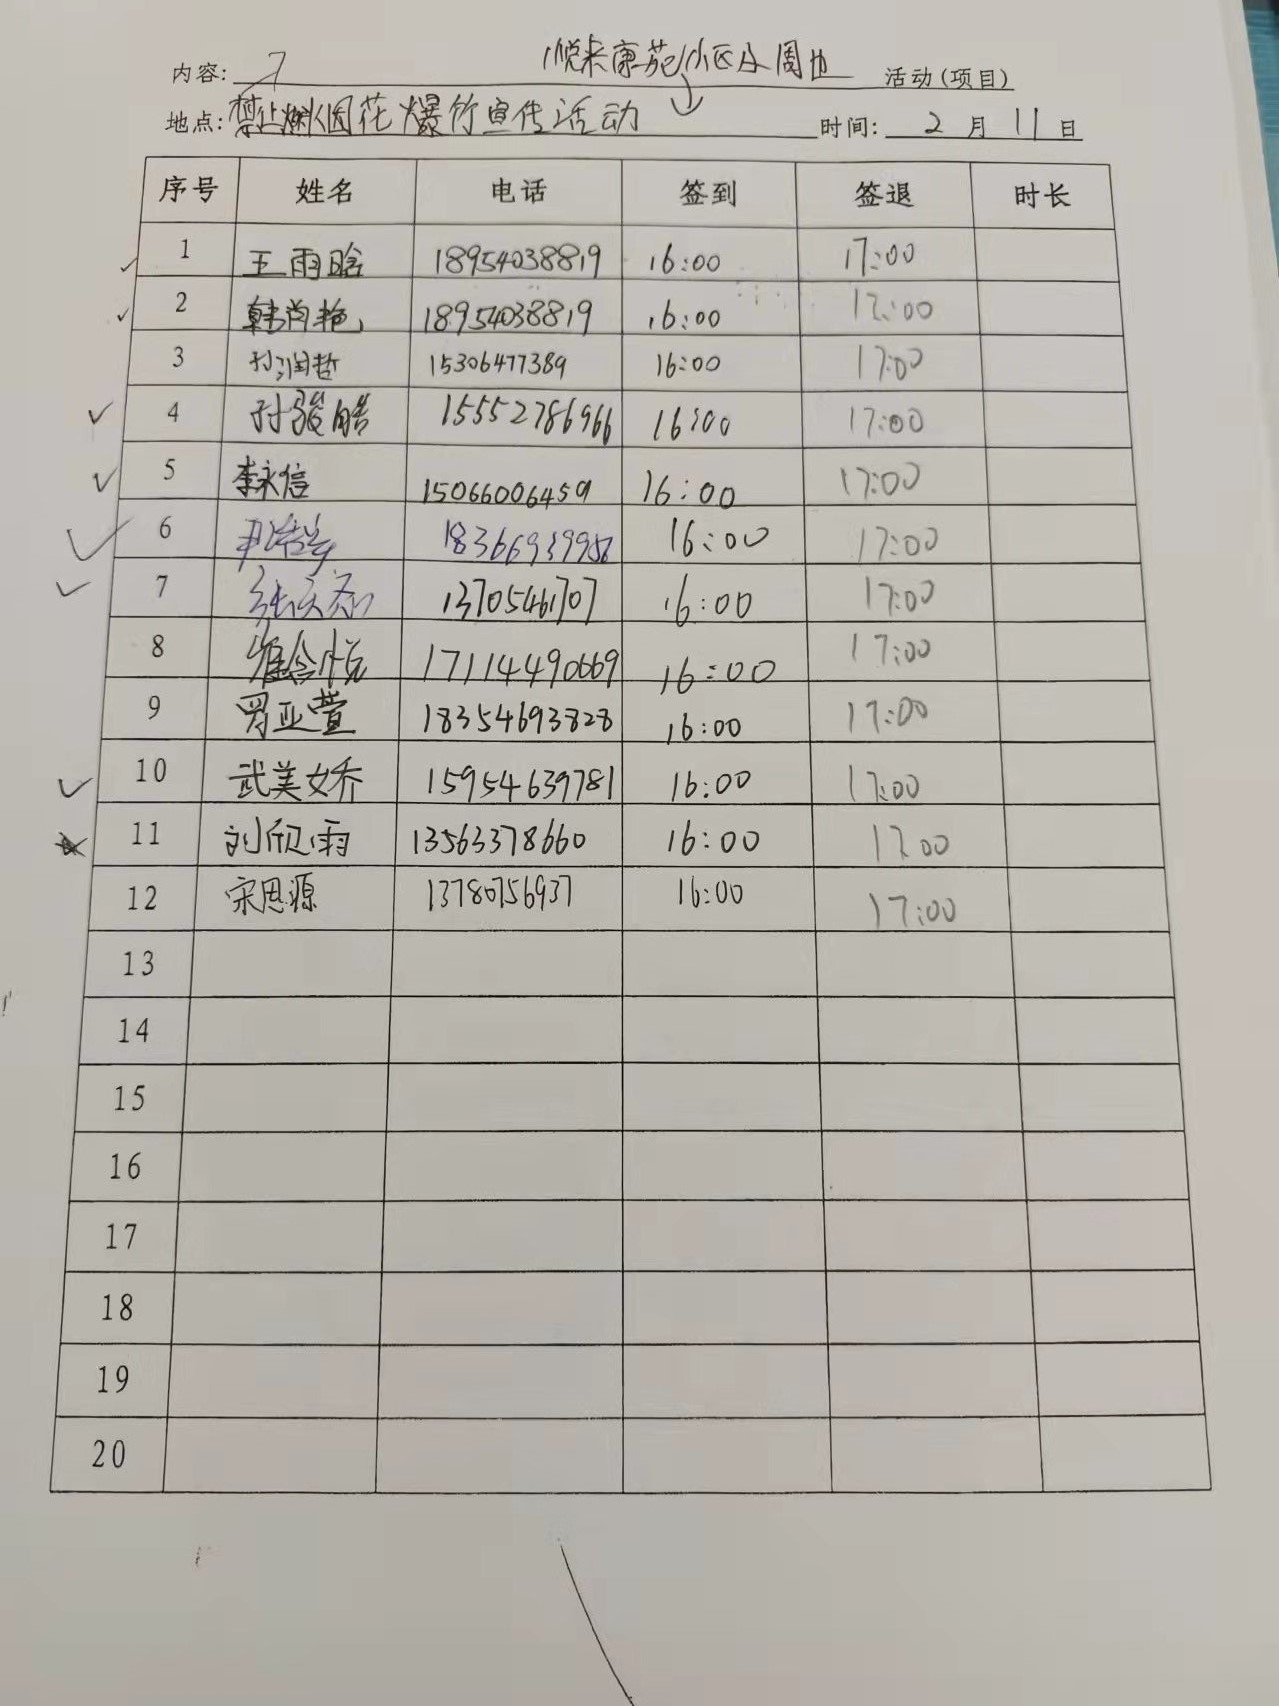 悦来康苑小区及周边
内容: 活动(项目)
地点: 禁止燃烟花爆竹宣传活动 时间: 2 月 11 日
序号 姓名 电话 签到 签退 时长
1 王雨晗 18954038819 16:00 17:00
2 韩尚艳 18954038819 16:00 17:00
3 孙润哲 15306477389 16:00 17:00
4 孙骏皓 15552786966 16:00 17:00
5 李永信 15066006459 16:00 17:00
6 18366939958 16:00 17:00
7 13705461707 16:00 17:00
8 崔含悦 17114490669 16:00 17:00
9 罗亚萱 18354693828 16:00 17:00
10 武美娇 15954639781 16:00 17:00
11 刘欣雨 13563378660 16:00 17:00
12 宋思源 13780756937 16:00 17:00
13
14
15
16
17
18
19
20